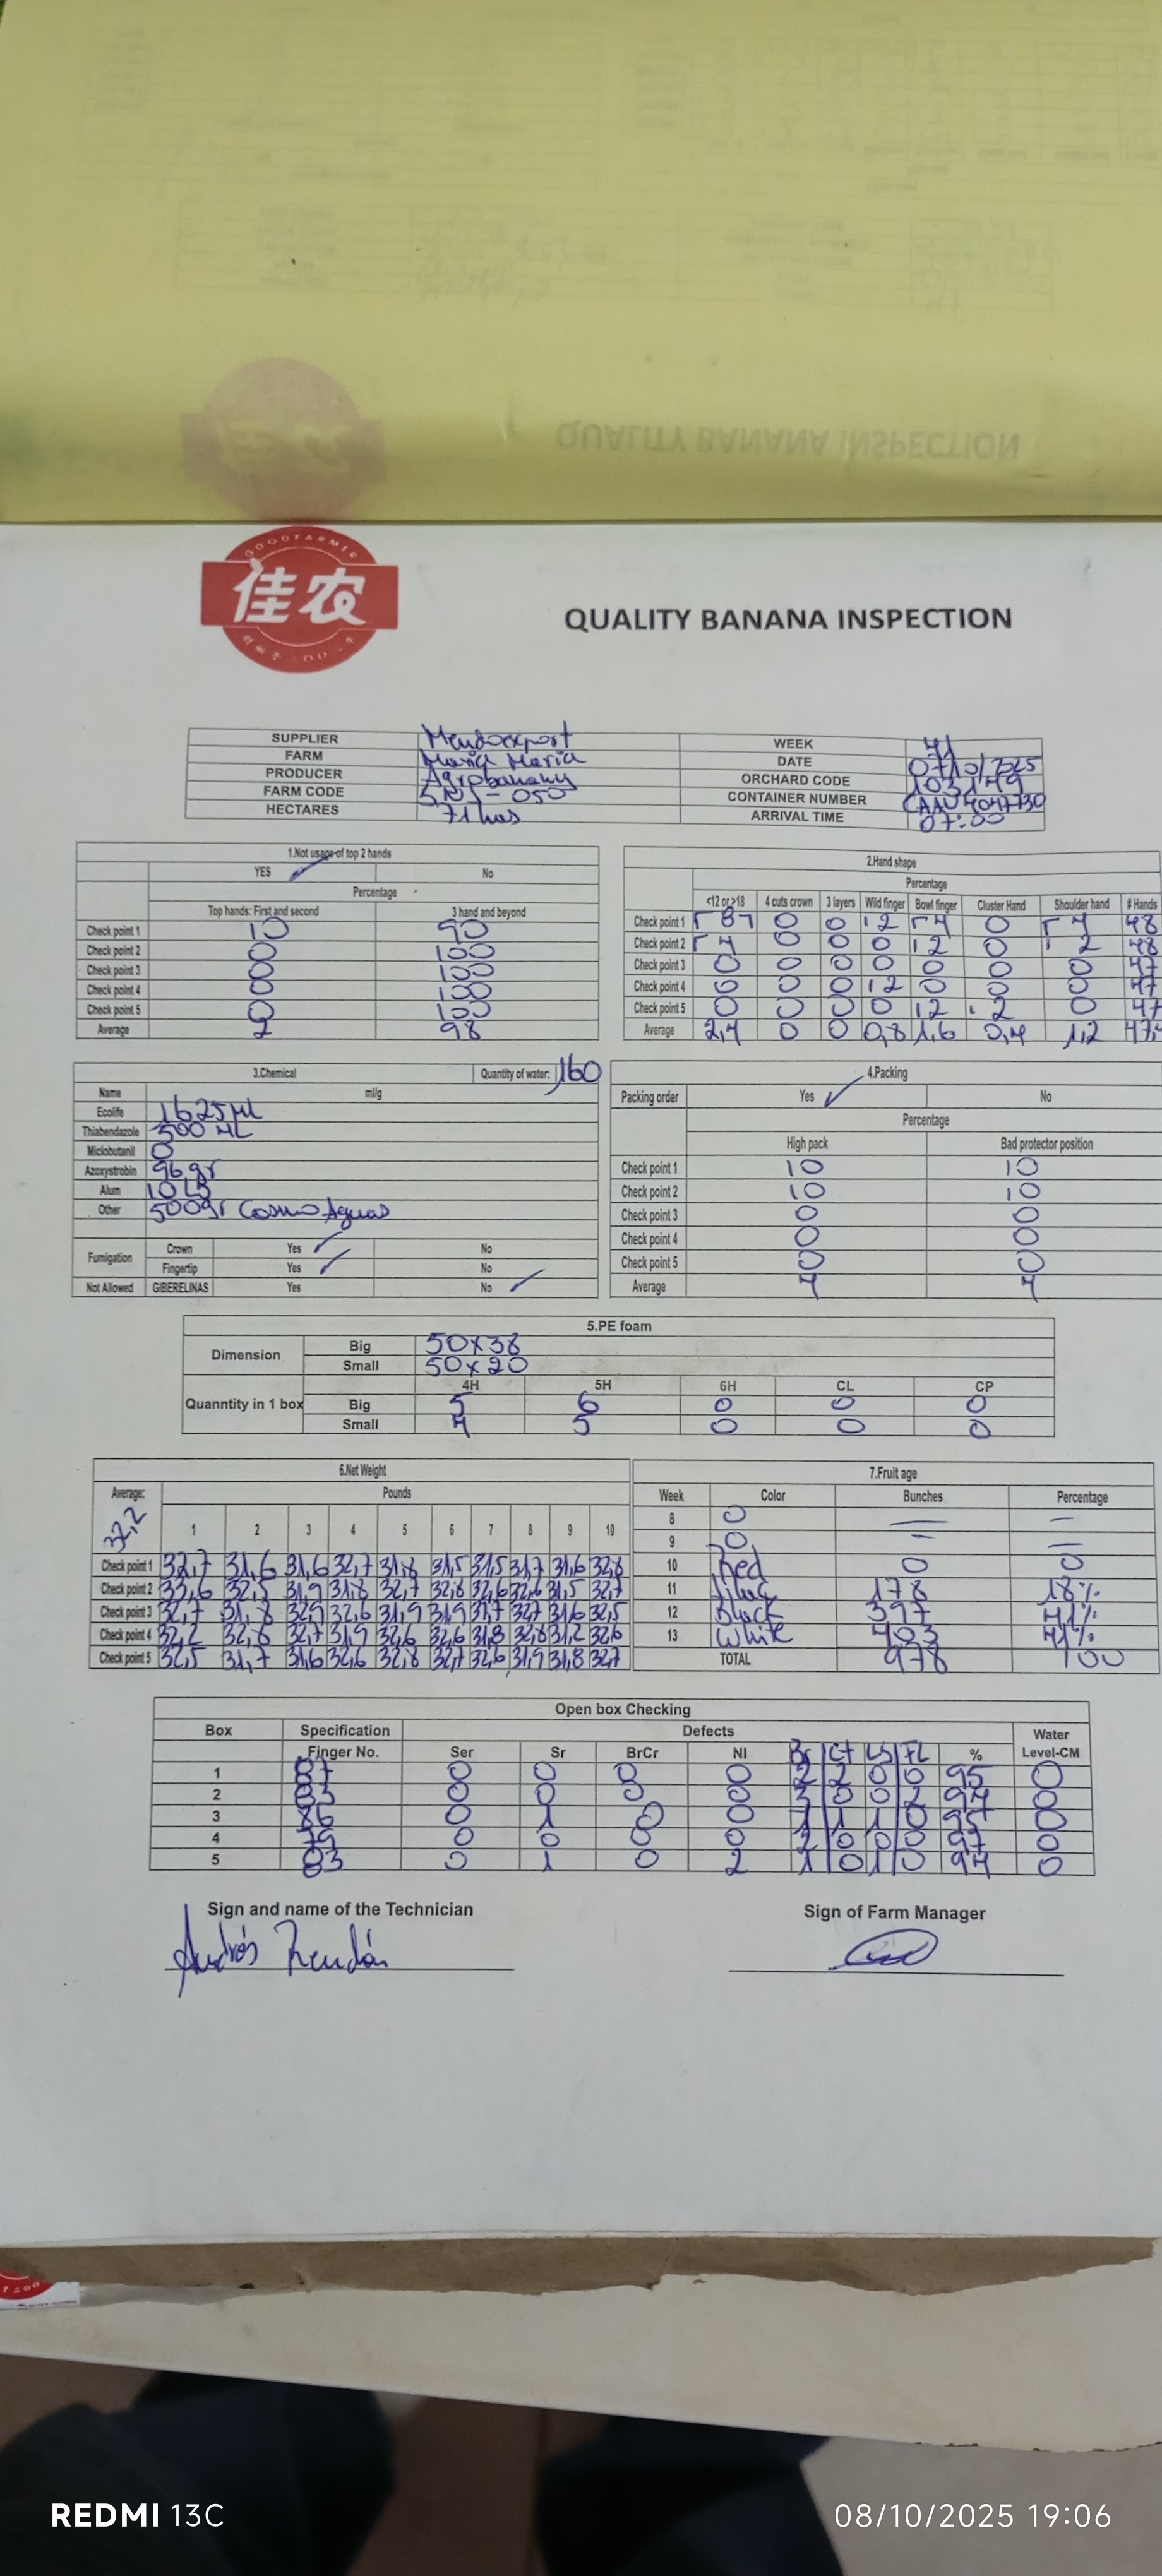 QUALITY BANANA INSPECTION
GOODFARMER
佳农
QUALITY BANANA INSPECTION
SUPPLIER Mendoexport WEEK 41
FARM María María DATE 07/10/2025
PRODUCER ORCHARD CODE 103149
FARM CODE CONTAINER NUMBER
HECTARES 71 has ARRIVAL TIME 07:00
1.Not usage of top 2 hands
YES ✓ No
Percentage
Top hands: First and second 3 hand and beyond
Check point 1 10 90
Check point 2 0 100
Check point 3 0 100
Check point 4 0 100
Check point 5 0 100
Average 2 98
2.Hand shape
Percentage
<12 or >18 4 cuts crown 3 layers Wild finger Bowl finger Cluster Hand Shoulder hand # Hands
Check point 1 0 0 0 48
Check point 2 0 0 0 0 48
Check point 3 0 0 0 0 0 0 0 47
Check point 4 0 0 0 0 0 0 47
Check point 5 0 0 0 0 0 47
Average 2,4 0 0 0,8 1,6 0,4 1,2
3.Chemical Quantity of water: 160
Name ml/g
Ecolife 1625 ml
Thiabendazole 500 ML
Miclobutanil 0
Azoxystrobin 96 gr
Alum 10 LB
Other 500gr Cosmo Aguas
Fumigation Crown Yes ✓ No
Fingertip Yes ✓ No
Not Allowed GIBERELINAS Yes No ✓
4.Packing
Packing order Yes ✓ No
Percentage
High pack Bad protector position
Check point 1 10 10
Check point 2 10 10
Check point 3 0 0
Check point 4 0 0
Check point 5 0 0
Average 4 4
5.PE foam
Dimension Big 50x38
Small 50x20
4H 5H 6H CL CP
Quanntity in 1 box Big 5 6 0 0 0
Small 4 5 0 0 0
6.Net Weight
Average: 32,2 Pounds
1 2 3 4 5 6 7 8 9 10
Check point 1 32,7 31,6 31,6 32,7 31,8 31,5 31,5 31,7 31,6 32,8
Check point 2 33,6 32,5 31,9 31,8 32,7 32,8 32,6 32,6 31,5 32,7
Check point 3 32,7 31,8 32,9 32,6 31,9 31,9 31,7 32,7 31,6 32,5
Check point 4 32,2 32,8 32,7 31,9 32,6 32,6 31,8 32,8 31,2 32,6
Check point 5 32,5 31,7 31,6 32,6 32,8 32,7 32,6 31,9 31,8 32,7
7.Fruit age
Week Color Bunches Percentage
8 0 — —
9 0 — —
10 Red 0 0
11 178 18%
12 Black 397 41%
13 White 403 41%
TOTAL 978 100
Open box Checking
Box Specification Defects Water
Finger No. Ser Sr BrCr NI Br CT LS FL % Level-CM
1 87 0 0 0 0 2 2 0 0 95 0
2 83 0 0 0 0 3 0 0 2 94 0
3 86 0 1 0 0 1 1 1 0 95 0
4 79 0 0 0 0 2 0 0 0 97 0
5 83 0 1 0 2 1 0 1 0 94 0
Sign and name of the Technician Sign of Farm Manager
Andrés Rendón
REDMI 13C 08/10/2025 19:06